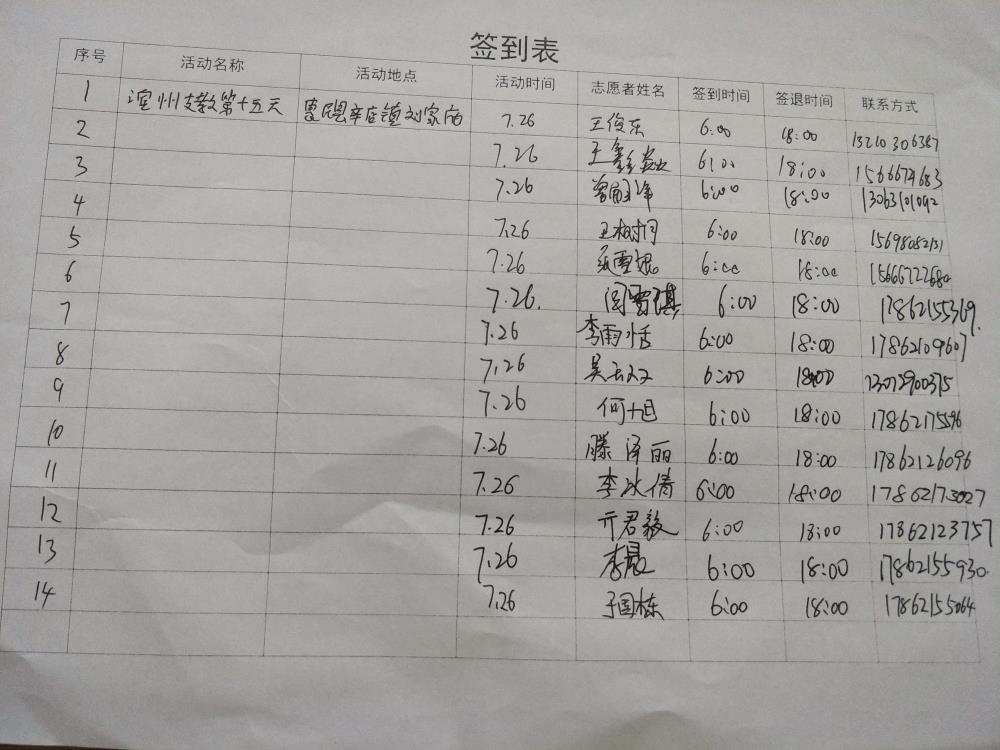 签到表
序号 活动名称 活动地点 活动时间 志愿者姓名 签到时间 签退时间 联系方式
1 滨州支教第十五天 7.26 王俊东 6:00 18:00 13210306387
2 7.26 王鑫 6:00 18:00
3 7.26 6:00 18:00 13063101092
4 7.26 王相时 6:00 18:00 15698082131
5 7.26 6:00 18:00 15666722680
6 7.26. 闫雪琪 6:00 18:00 17862155369.
7 7.26 李雨恬 6:00 18:00 17862109607
8 7.26 吴 6:00 18:00
9 7.26 何 6:00 18:00 17862175596
10 7.26 滕泽丽 6:00 18:00 17862126096
11 7.26 李冰倩 6:00 18:00 17862173027
12 7.26 亓君毅 6:00 18:00 17862123757
13 7.26 李晟 6:00 18:00 17862155930.
14 7.26 于国栋 6:00 18:00 17862155064